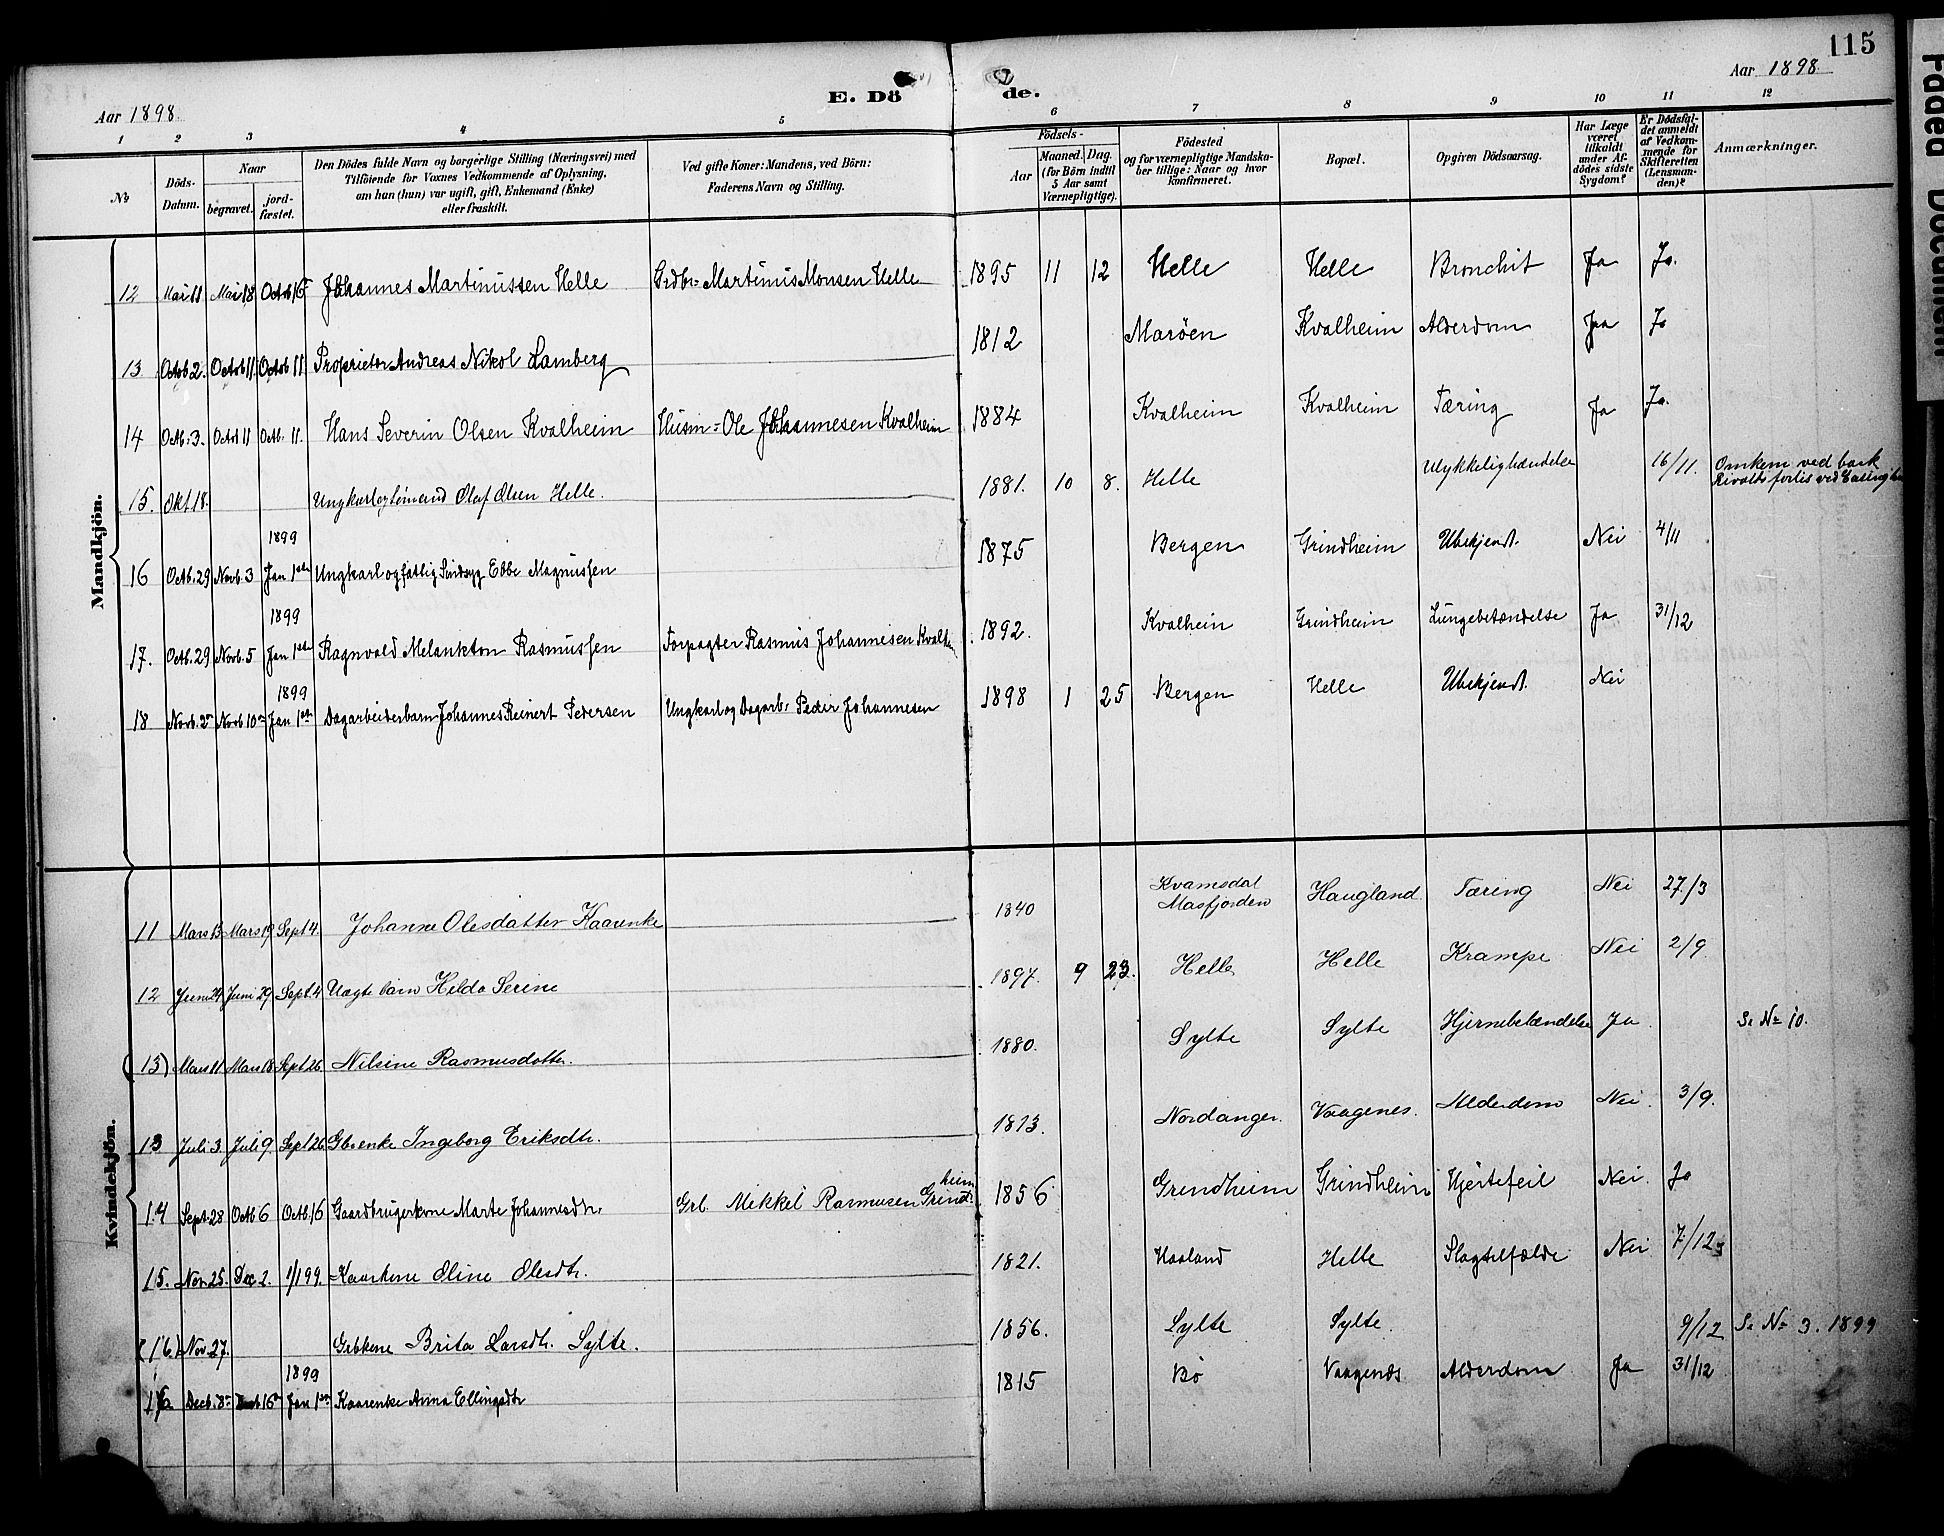 115
Aar 1898.
E. Dö
de.
Aar 1898.
1 2 3 4 5 6 7 8 9 10 11 12
No
Döds-Datum.
Naar
begravet.
jord-fæstet.
Den Dödes fulde Navn og borgerlige Stilling (Næringsvei) med
Tilföiende för Voxnes Vedkommende af Oplysning,
om han (hun) var ugift, gift, Enkemand (Enke)
eller fraskilt.
Ved gifte Koner: Mandens, ved Börn:
Faderens Navn og Stilling.
Födsels-
Aar
Maaned. Dag.
(for Börn indtil
5 Aar samt
Værnepligtige).
Födested
og for værnepligtige Mandska-
ber tillige: Naar og hvor
konfirmeret.
Bopæl.
Opgiven Dödsaarsag.
Har Læge
været
tilkaldt
under Af-
dödes sidste
Sygdom?
Er Dödsfal-
det anmeldt
af Vedkom-
mende for
Skifteretten
(Lensman-
den)?
Anmærkninger.
Mandkjön.
12 Mai 11 Mai 18 Octob 16 Johannes Martinussen Helle Grdbr. Martinus Monsen Helle 1895 11 12 Helle Helle Bronchit Ja Ja.
13 Octob 2. Octob 11. Octob 11 Proprietær Andreas Nikol Lamberg 1812 Marøen Kvalheim Alderdom Jaa Ja
14 Octb. 3. Octob 11 Octb. 11. Hans Severin Olsen Kvalheim Husm = Ole Johannesen Kvalheim 1884 Kvalheim Kvalheim Tæring Ja Ja.
15. Okt 18. Ungkarl og Sømand Olaf Olsen Helle. 1881. 10 8. Helle Ulykkelighændelse 16/11. Omkom ved bark
forlis ved
1899
16 Octb. 29 Novb. 3 Jan 1ste Ungkarl og fattig Sindsyg Ebbe Magnussen 1875 Bergen Grindheim Ubekjendt. Nei 4/11
1899
17. Octb. 29 Novb. 5 Jan 1ste Ragnvald Melankton Rasmussen Forpagter Rasmus Johannesen Kvalh 1892. Kvalheim Grindheim Lungebetændelse Ja 31/12
1899
18 Novb. 3die Novb. 10de Jan 1ste Dagarbeiderbarn Johannes Reinert Pedersen Ungkarl og Dagarb. Peder Johannesen 1898 1 25 Bergen Helle Ubekjendt. Nei
Kvindekjön.
11 Mars 13 Mars 19 Sept 4. Johanne Olesdatter Kaarenke 1840 Kvamsdal
Masfjorden Haugland Tæring Nei 27/3
12 Juni 24 Juni 29 Sept. 4 Uægte barn Hilda Serine 1897. 9 23. Helle Helle Krampe Nei 2/9.
(13) Mars 11 Mars 18 Sept 26. Nilsine Rasmusdatter. 1880. Sylte Sylte Hjernebetændelse Ja Se No 10.
13 Juli 3 Juli 9. Sept 26 Gbrenke Ingeborg Eriksdtr. 1813. Nordanger Vaagenes. Alderdom Nei. 3/9.
14 Sept. 28 Octb 6 Octb. 16 Gaardbrugerkone Marte Johannesdtr. Grb. Mikkel Rasmusen Grind-
heim 1856 Grendheim Grindheim Hjertefeil Nei. Ja
15. Nov. 25. Dec 2. 1/1 99. Kaarkone Oline Olesdtr. 1821. Haaland Helle Slagtilfælde Nei 7/12
(16.) Nov. 27. Grbkone Brita Larsdtr. Sylte. 1856. Sylte Sylte. 9/12 Se No 3. 1899
1899
16 Decb. 8de 16de Jan 1ste Kaarenke Anna Ellingsdtr 1815 Bø Vaagenes Alderdom Ja 31/12
Faded Document